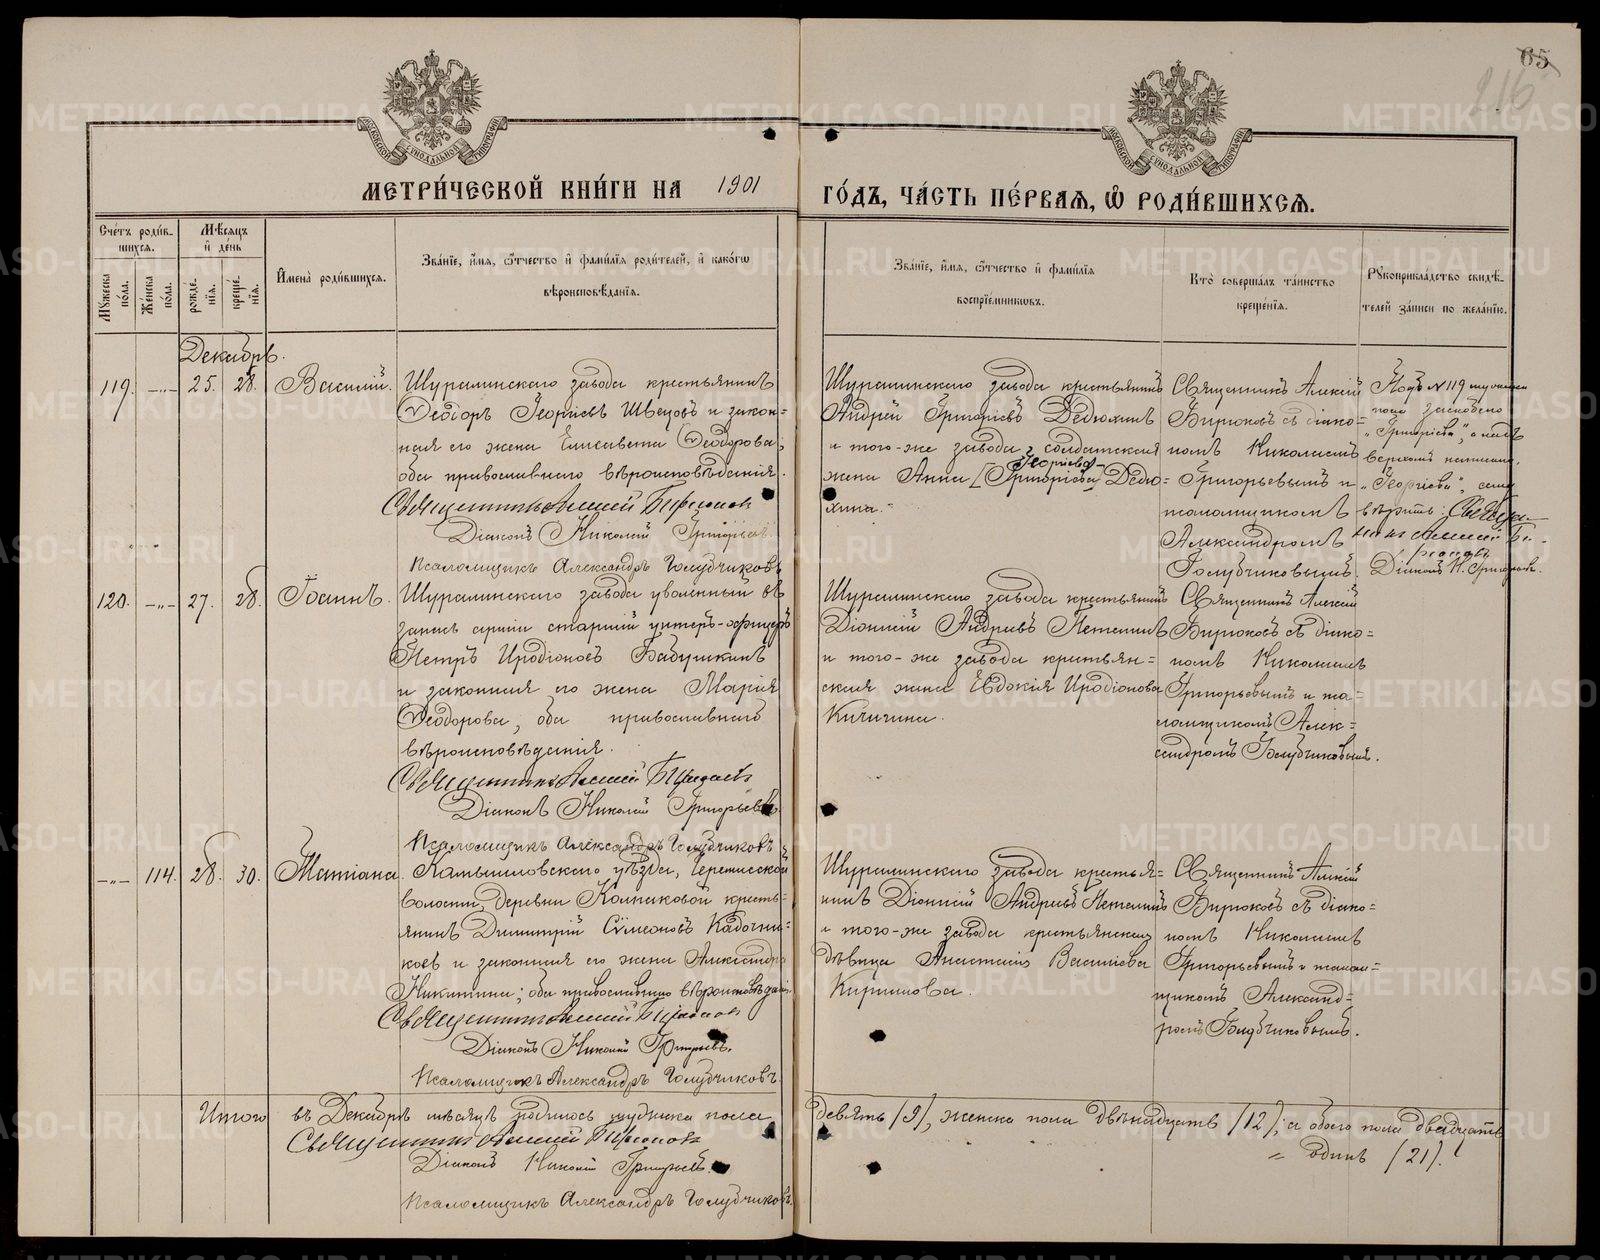 65
216
МЕТРИ́ЧЕСКОЙ КНИ́ГИ НА 1901
ГО́ДЪ, ЧА́СТЬ ПЕ́РВАЯ, Ѡ РОДИ́ВШИХСЯ.
Сче́тъ роди́в-
шихся.
Му́жеска по́ла.
Же́нска по́ла.
Мѣ́сяцъ и де́нь
рожде-
нія.
креще-
нія.
Имена̀ роди́вшихся.
Зва́ніе, и́мя, ѻ́тчество и фами́лія роди́телей, и како́гѡ
вѣроисповѣ́данія.
Зва́ніе, и́мя, ѻ́тчество и фами́лія
воспріе́мниковъ.
Кто̀ соверша́лъ та́инство
креще́нія.
Рукоприкла́дство свидѣ́-
телей за́писи по жела́нію.
Декабрь.
119. —„— 25. 28. Василій.
Шуралинскаго завода крестьянинъ
Ѳеодоръ Георгіевъ Швецовъ и закон=
ная его жена Елисавета Ѳеодорова,
оба православнаго вѣроисповѣданія.
Священникъ Алексій Бирюковъ
Діаконъ Николай Григорьевъ.
Псаломщикъ Александръ Голубчиковъ
Шуралинскаго завода крестьянинъ
Андрей Григоріевъ Дедюхинъ
и того-же завода солдатская
Георгіева
жена Анна [Григоріева] Дедю=
хина.
Священникъ Алексій
Бирюковъ съ діако=
номъ Николаемъ
Григорьевымъ и
псаломщикомъ
Александромъ
Голубчиковымъ.
Подъ № 119 мужеска
пола заскоблено
„Григоріева", а надъ
верхомъ написано
„Георгіева", сему
вѣрить: Священ-
никъ Алексій Би-
рюковъ
Діаконъ Н. Григорьевъ.
120. —„— 27. 28. Іоаннъ.
Шуралинскаго завода уволенный въ
запасъ арміи старшій унтеръ-офицеръ
Петръ Иродіоновъ Бабушкинъ
и законная его жена Марія
Ѳеодорова, оба православнаго
вѣроисповѣданія.
Священникъ Алексій Бирюковъ
Діаконъ Николай Григорьевъ.
Псаломщикъ Александръ Голубчиковъ
Шуралинскаго завода крестьянинъ
Діонисій Андреевъ Петелинъ
и того-же завода крестьян=
ская жена Евдокія Иродіонова
Кичигина.
Священникъ Алексій
Бирюковъ съ діако=
номъ Николаемъ
Григорьевымъ и пса=
ломщикомъ Алек=
сандромъ Голубчиковымъ.
—„— 114. 28. 30. Татіана.
Камышловскаго уѣзда, Черемисской
волости, деревни Колпаковой кресть=
янинъ Димитрій Сѵмеоновъ Кадочни=
ковъ и законная его жена Александра
Никитина; оба православнаго вѣроисповѣданія.
Священникъ Алексій Бирюковъ
Діаконъ Николай Григорьевъ.
Псаломщикъ Александръ Голубчиковъ.
Шуралинскаго завода крестья=
нинъ Діонисій Андреевъ Петелинъ
и того-же завода крестьянская
дѣвица Анастасія Васильева
Кириллова.
Священникъ Алексій
Бирюковъ съ діако=
номъ Николаемъ
Григорьевымъ и псалом=
щикомъ Александ=
ромъ Голубчиковымъ.
Итого въ Декабрѣ мѣсяцѣ родилось мужеска пола
девять (9), женска пола двѣнадцать (12), а обоего пола двадцать
= одинъ (21).
Священникъ Алексій Бирюковъ
Діаконъ Николай Григорьевъ.
Псаломщикъ Александръ Голубчиковъ.